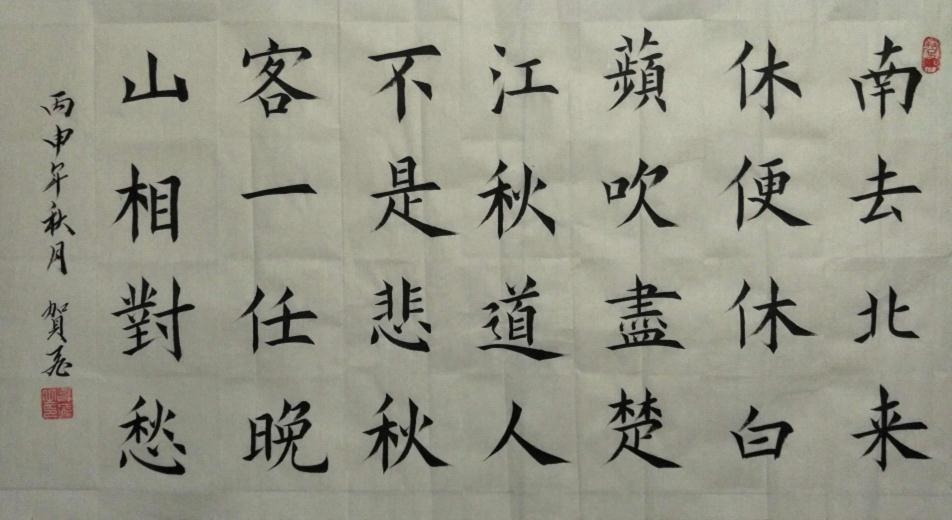 南去北来
休便休白
蘋吹盡楚
江秋道人
不是悲秋
客一任晚
山相對愁
丙申年秋月 賀飛